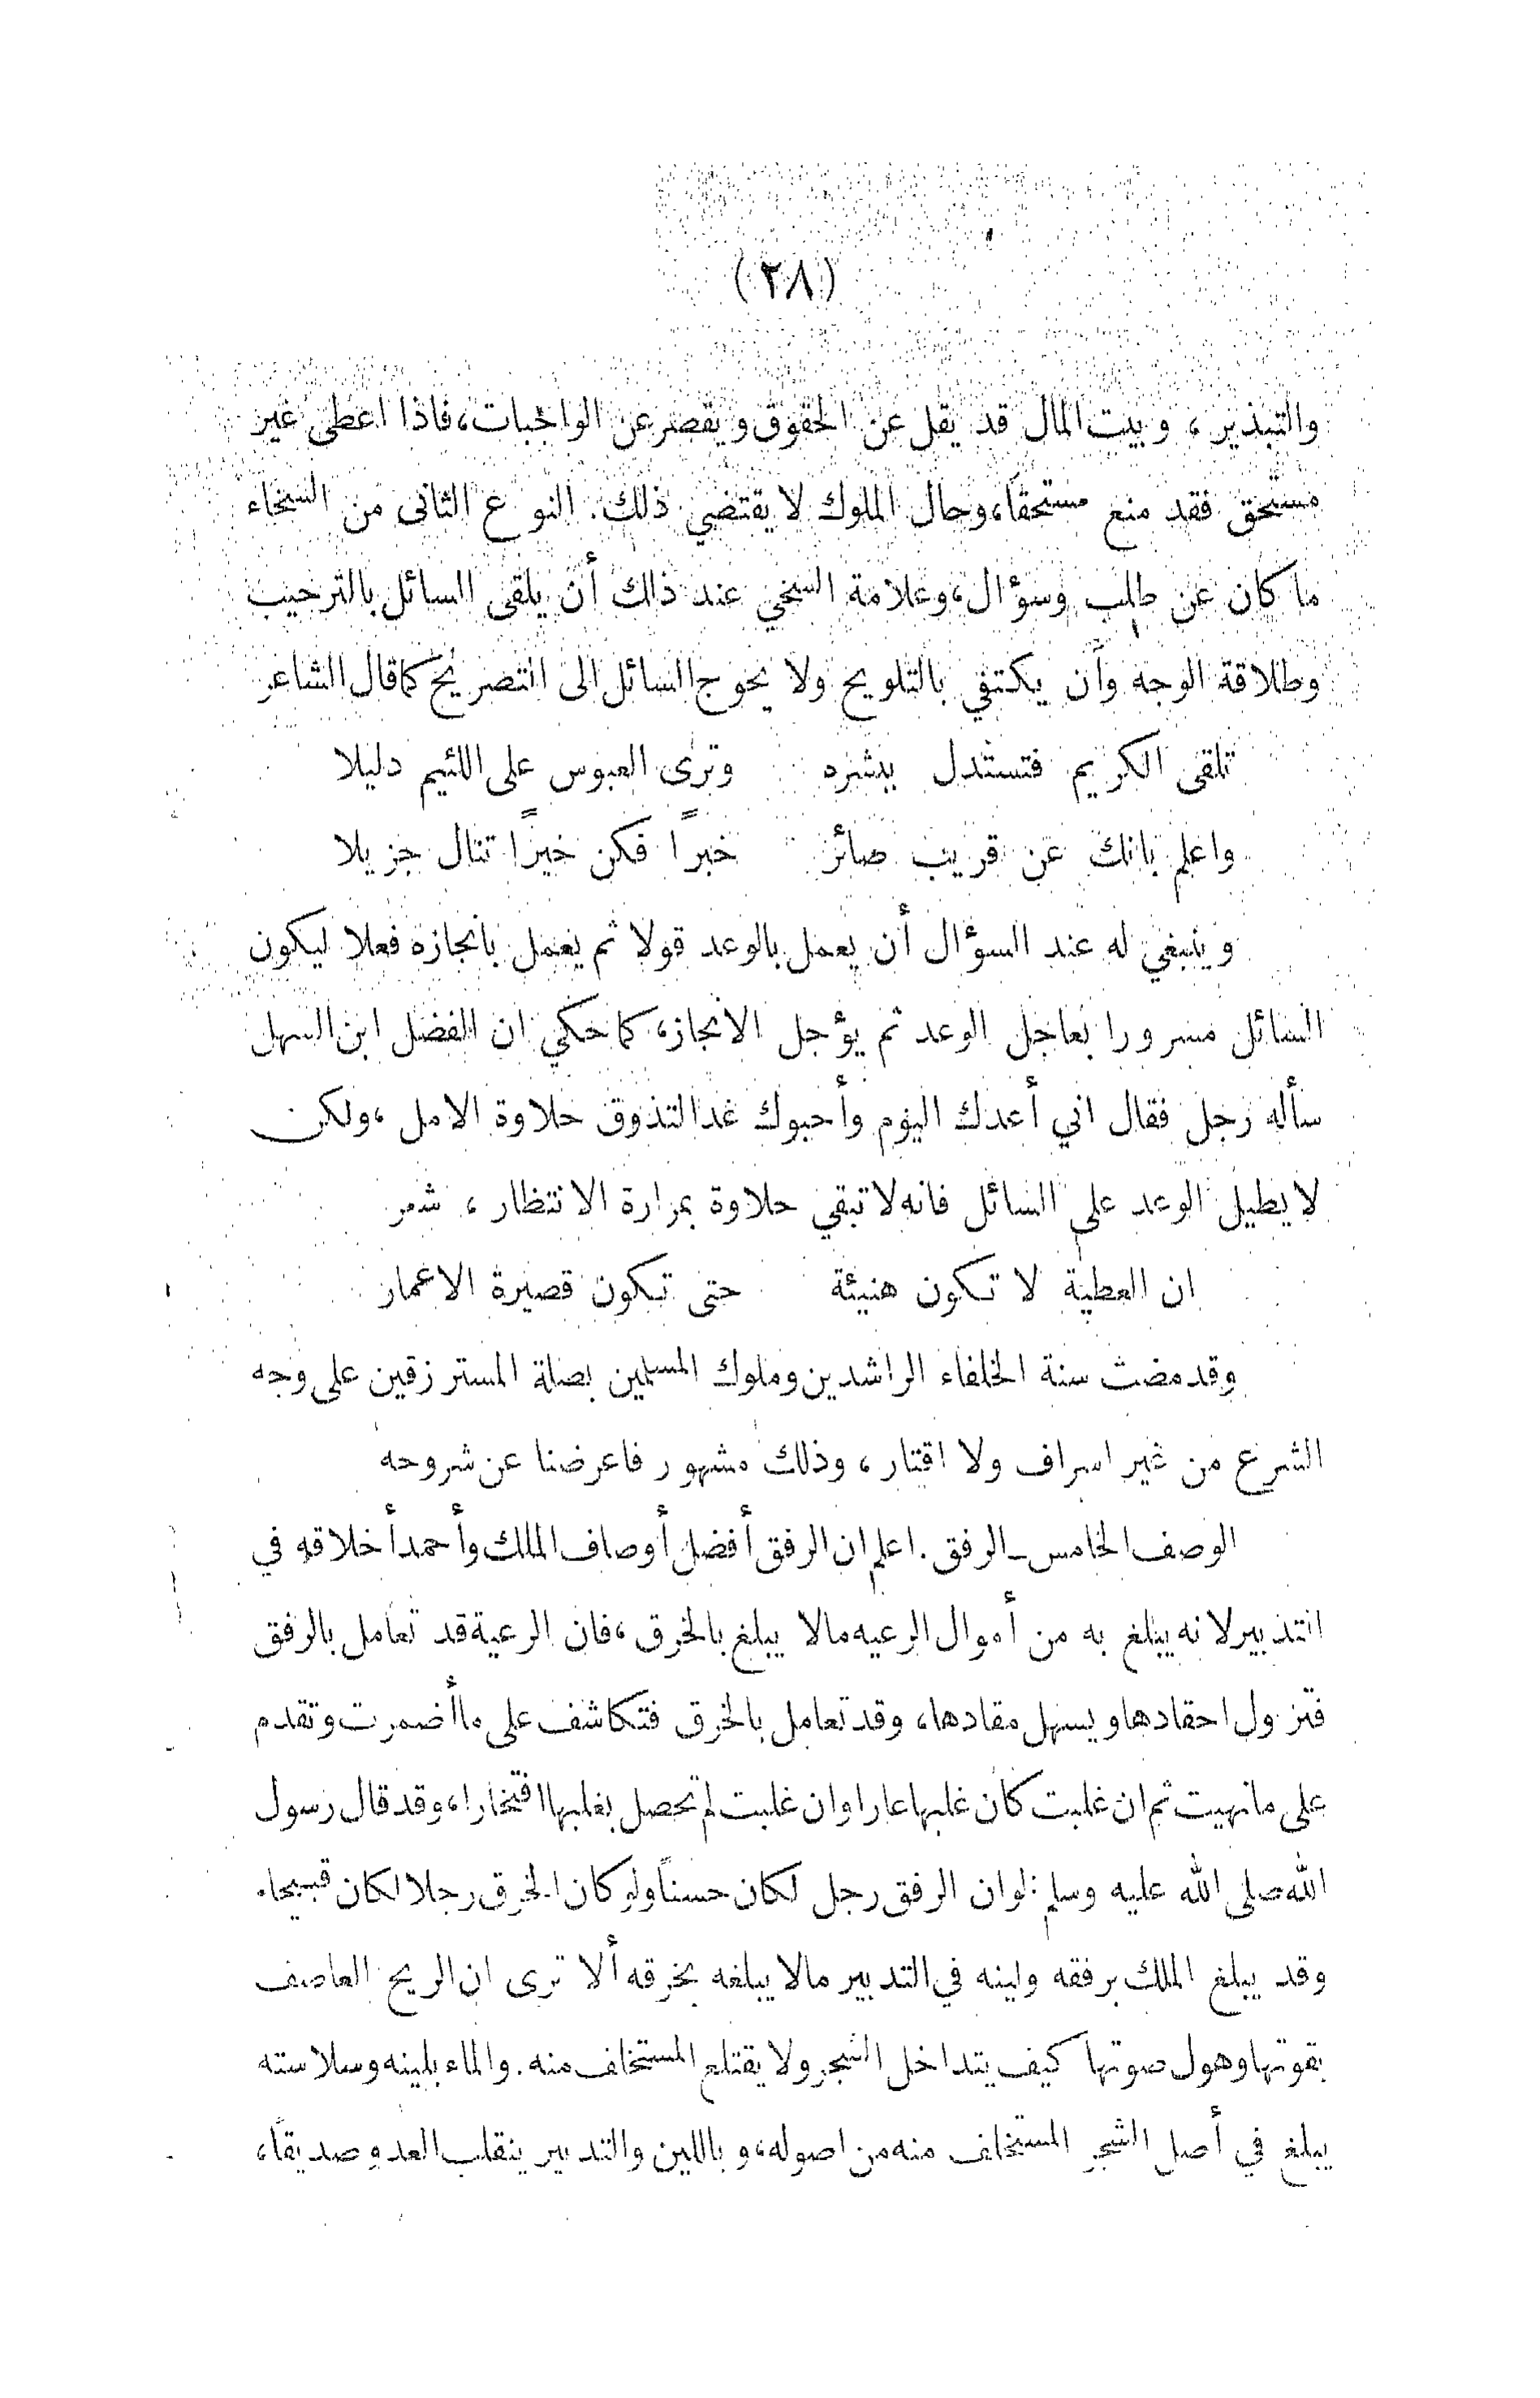 (٢٨)
والتبذير ، وبيت المال قد يقل عن الحقوق ويقصر عن الواجبات، فاذا اعطى غير
مستحق فقد منع مستحقاً، وحال الملوك لا يقتضي ذلك. النوع الثانى من السخاء
ما كان عن طلب وسؤال، وعلامة السخي عند ذلك أن يلقى السائل بالترحيب
وطلاقة الوجه وأن يكتفي بالتلويح ولا يحوج السائل الى التصريح كما قال الشاعر
تلقى الكريم فتستدل ببشره وترى العبوس على اللئيم دليلا
واعلم بانك عن قريب صائر خبراً فكن خيراً تنال جزيلا
وينبغي له عند السؤال أن يعمل بالوعد قولا ثم يعمل بانجازه فعلا ليكون
السائل مسرورا بعاجل الوعد ثم يؤجل الانجاز، كما حكي ان الفضل ابن السهل
سأله رجل فقال اني أعدك اليوم وأحبوك غدا لتذوق حلاوة الامل ، ولكن
لا يطيل الوعد على السائل فانه لا تبقي حلاوة بمرارة الانتظار ، شعر
ان العطية لا تكون هنيئة حتى تكون قصيرة الاعمار
وقد مضت سنة الخلفاء الراشدين وملوك المسلمين بصلة المسترزقين على وجه
الشرع من غير اسراف ولا اقتار ، وذلك مشهور فاعرضنا عن شروحه
الوصف الخامس ــ الرفق . اعلم ان الرفق أفضل أوصاف الملك وأحمد أخلاقه في
التدبير لانه يبلغ به من أموال الرعيه مالا يبلغ بالخرق ، فان الرعية قد تعامل بالرفق
فتزول احقادها ويسهل مقادها، وقد تعامل بالخرق فتكاشف على ما أضمرت وتقدم
على ما نهيت ثم ان غلبت كان غلبها عارا وان غلبت لم تحصل بغلبها افتخارا، وقد قال رسول
الله صلى الله عليه وسلم : لو ان الرفق رجل لكان حسناً ولو كان الخرق رجلا لكان قبيحا.
وقد يبلغ الملك برفقه ولينه في التدبير مالا يبلغه بخرقه ألا ترى ان الريح العاصف
بقوتها وهول صوتها كيف يتداخل الشجر ولا يقتلع المستخلف منه . والماء بلينه وسلاسته
يبلغ في أصل الشجر المستخلف منه من اصوله، وباللين والتدبير ينقلب العدو صديقاً،